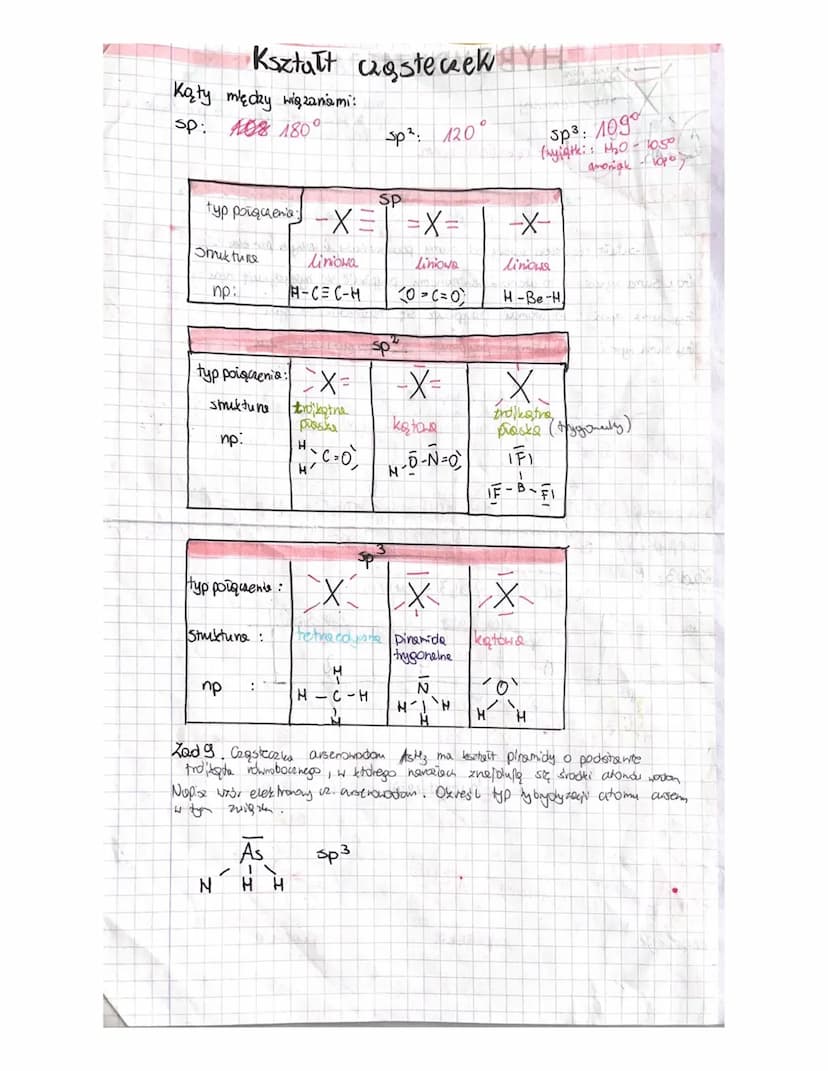 Kształt cząsteczek
Kąty między wiązaniami:
sp: 108 180° sp²: 120° sp³: 109°
(wyjątki: H₂O - 105°
amoniak - 109°)
sp
typ połączenia: -X≡ =X= -X-
struktura liniowa liniowa liniowa
np: H-C≡C-H O=C=O H-Be-H
sp²
typ połączenia: X= -X= X
struktura trójkątna płaska kątowa trójkątna płaska (trygonalny)
np: H H C=O H-O-N=O F F-B-F
sp³
typ połączenia: X X X
struktura: tetraedryczna piramida trygonalna kątowa
np: H H-C-H H N H H H O H H
Zad 9. Cząsteczka arsenowodoru AsH₃ ma kształt piramidy o podstawie
trójkąta równobocznego, w którego narożach znajdują się środki atomów wodoru
Napisz wzór elektronowy cz. arsenowodoru. Określ typ hybrydyzacji atomu arsenu
w tym związku.
As sp³
N H H